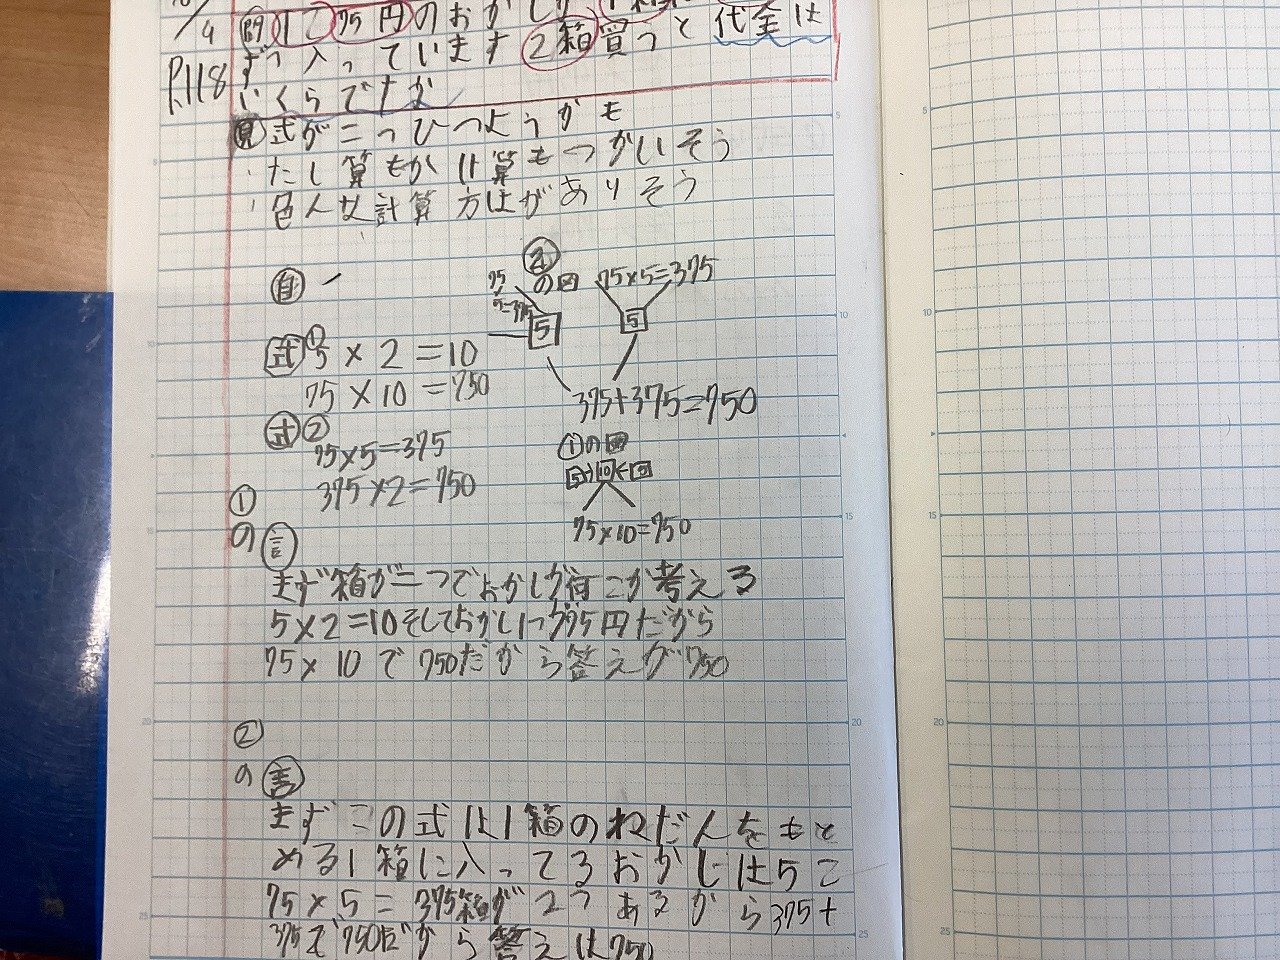 4
P.118
問 1こ75円のおかしが
ずつ入っています2箱買うと代金は
いくらですか
見 式が二つひつようかも
たし算もかけ算もつかいそう
色んな計算方ほうがありそう
自
②の図
75×5=375
75×5=375
5
5
375+375=750
式① 5×2=10
75×10=750
式②
75×5=375
375×2=750
①の図
5→10←5
75×10=750
①
の言
まず箱が二つでおかしが何こか考える
5×2=10そしておかし1つが75円だから
75×10で750だから答えが750
②
の言
まずこの式は1箱のねだんをもと
める1箱に入ってるおかしは5こ
75×5=375箱が2つあるから375+
375で750だから答えは750